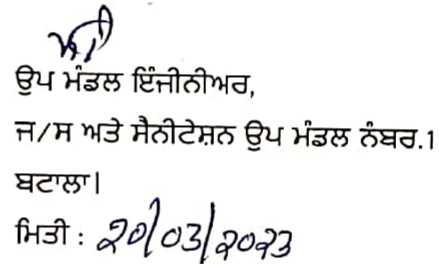 ਉਪ ਮੰਡਲ ਇੰਜੀਨੀਅਰ,
ਜ/ਸ ਅਤੇ ਸੈਨੀਟੇਸ਼ਨ ਉਪ ਮੰਡਲ ਨੰਬਰ.1
ਬਟਾਲਾ।
ਮਿਤੀ : 20/03/2023